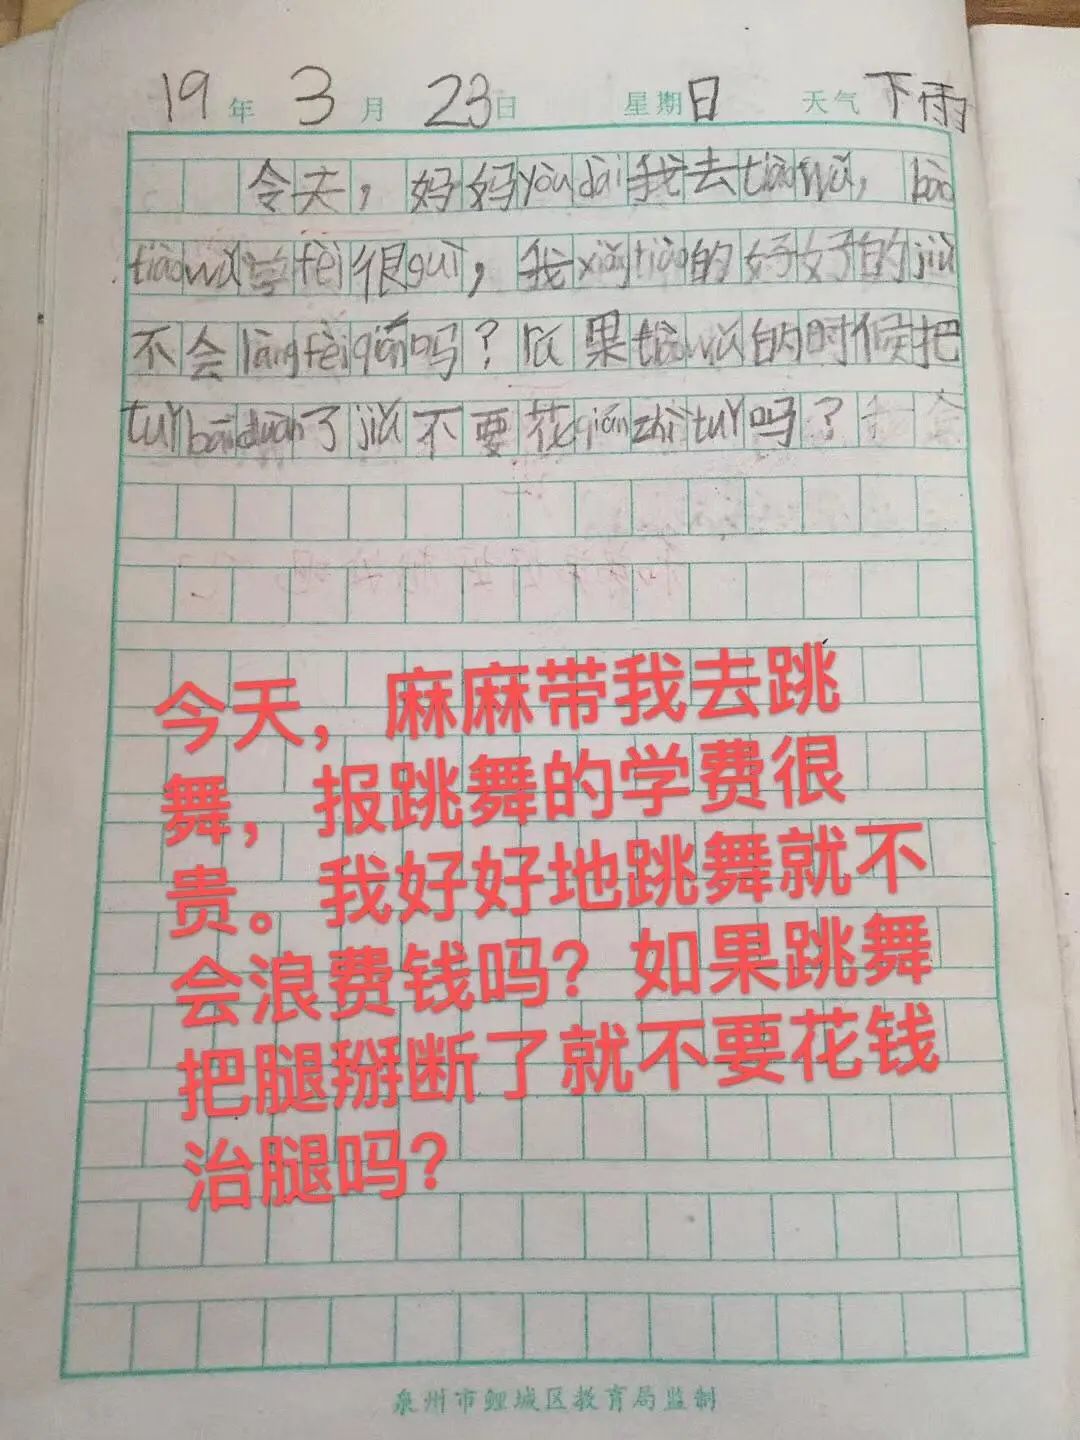 19年 3月 23日 星期日 天气 下雨
今天，妈妈yòu dài我去tiàowǔ，bào
tiàowǔ学fèi很guì，我xiǎng tiào的好好的jiù
不会làngfèiqián吗？rú果tiàowǔ的时候把
tuǐbāiduàn了jiù不要花qiánzhìtuǐ吗？
今天，麻麻带我去跳
舞，报跳舞的学费很
贵。我好好地跳舞就不
会浪费钱吗？如果跳舞
把腿掰断了就不要花钱
治腿吗？
泉州市鲤城区教育局监制